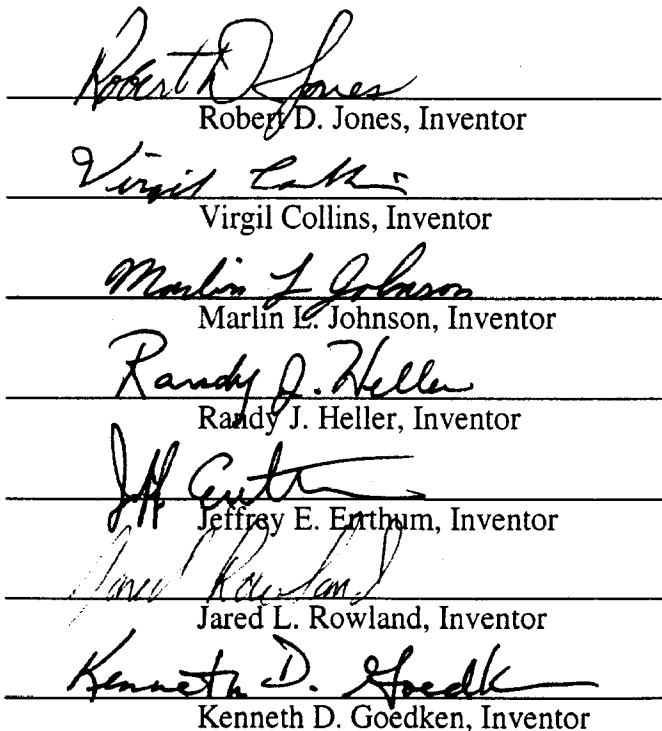 Robert D Jones
Robert D. Jones, Inventor
Virgil Collins
Virgil Collins, Inventor
Marlin L Johnson
Marlin L. Johnson, Inventor
Randy J. Heller
Randy J. Heller, Inventor
Jeff
Jeffrey E. Errthum, Inventor
Jared Rowland
Jared L. Rowland, Inventor
Kenneth D. Goedk
Kenneth D. Goedken, Inventor